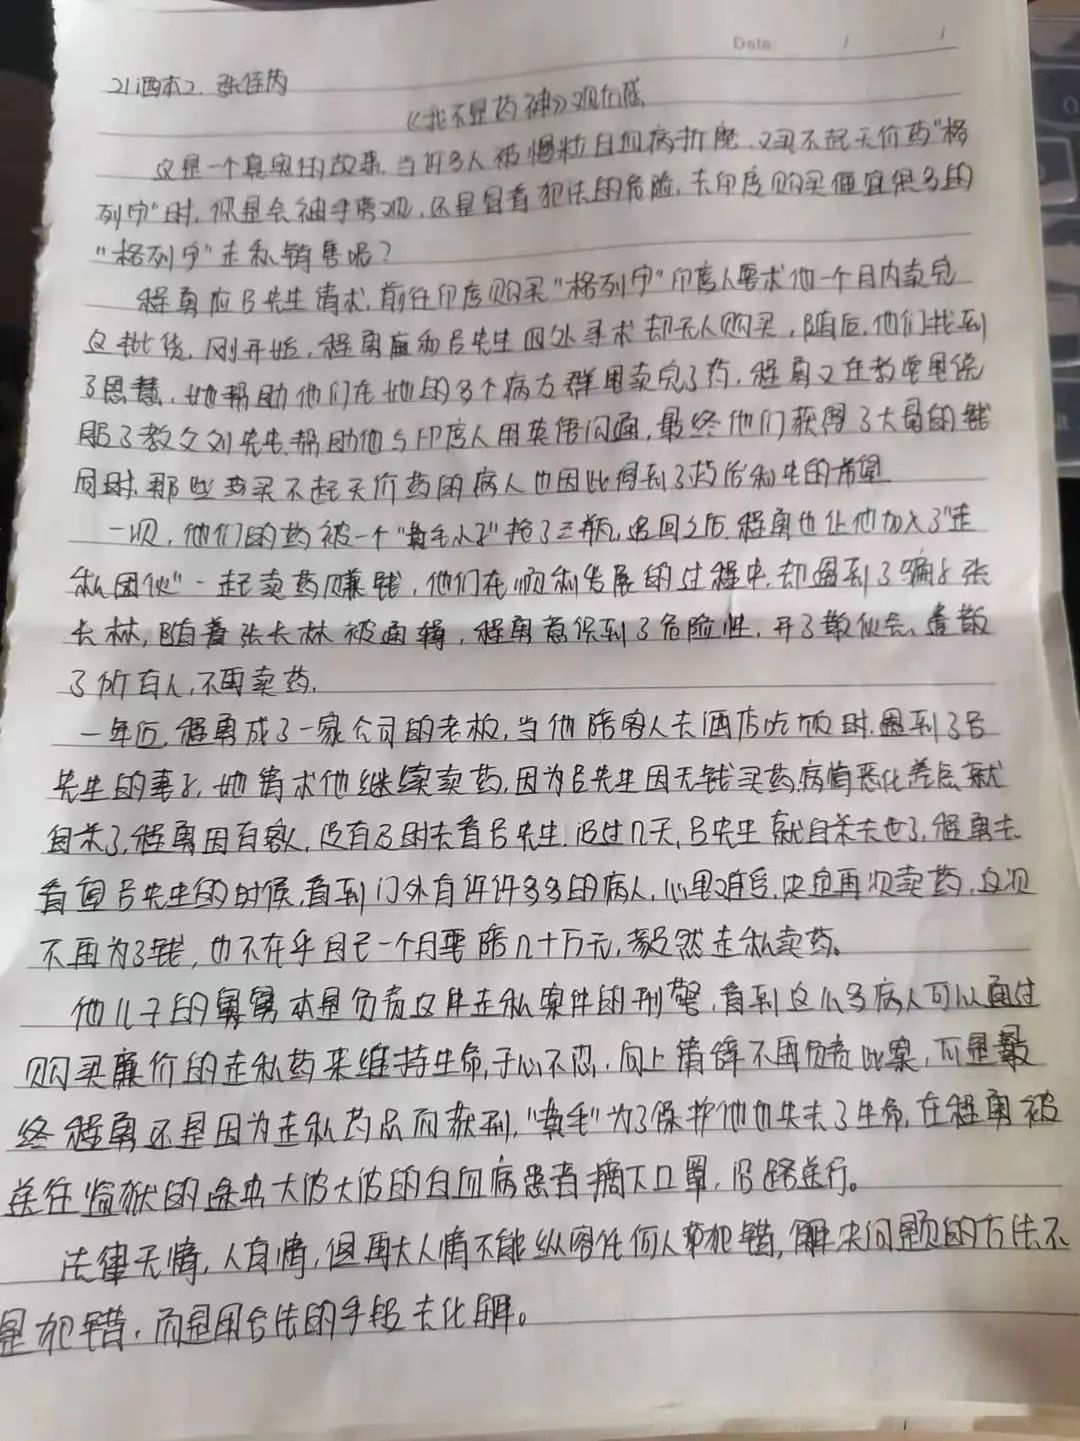 Date / /
21酒本2. 张佳芮
《我不是药神》观后感
这是一个真实的故事. 当许多人被慢粒白血病折磨. 又买不起天价药"格
列宁"时. 你是会袖手旁观, 还是冒着犯法的危险, 去印度购买便宜很多的
"格列宁"走私销售呢?
程勇应吕先生请求. 前往印度购买"格列宁"印度人要求他一个月内卖完
这批货, 刚开始, 程勇和吕先生四处寻求却无人购买, 随后, 他们找到
了思慧, 她帮助他们在她的多个病友群里卖完了药, 程勇又在教堂里说
服了教父刘先生帮助他与印度人用英语沟通, 最终他们获得了大量的钱
同时, 那些买不起天价药的病人也因此得到了救治和生的希望
一次, 他们的药被一个"黄毛小子"抢了三瓶, 追回之后. 程勇也让他加入了"走
私团伙"一起卖药赚钱, 他们在顺利发展的过程中, 却遇到了骗子张
长林, 随着张长林被通缉, 程勇意识到了危险性, 开了散伙会, 遣散
了所有人, 不再卖药.
一年后, 程勇成了一家公司的老板, 当他陪客人去酒店吃饭时. 遇到了吕
先生的妻子, 她请求他继续卖药, 因为吕先生因无钱买药, 病情恶化差点就
自杀了, 程勇因有客人, 没有及时去看吕先生. 没过几天, 吕先生就自杀去世了, 程勇去
看望吕先生的时候, 看到门外有许许多多的病人, 心里难受, 决定再次卖药, 这次
不再为了钱, 也不在乎自己一个月要赔几十万元, 毅然走私卖药。
他儿子的舅舅本是负责这件走私案件的刑警, 看到这么多病人可以通过
购买廉价的走私药来维持生命, 于心不忍, 向上请辞不再负责此案, 可是最
终程勇还是因为走私药品而获刑, "黄毛"为了保护他也失去了生命, 在程勇被
送往监狱的途中大波大波的白血病患者摘下口罩, 沿路送行。
法律无情, 人有情, 但再大人情不能纵容任何人犯错, 解决问题的方法不
是犯错, 而是用合法的手段去化解。